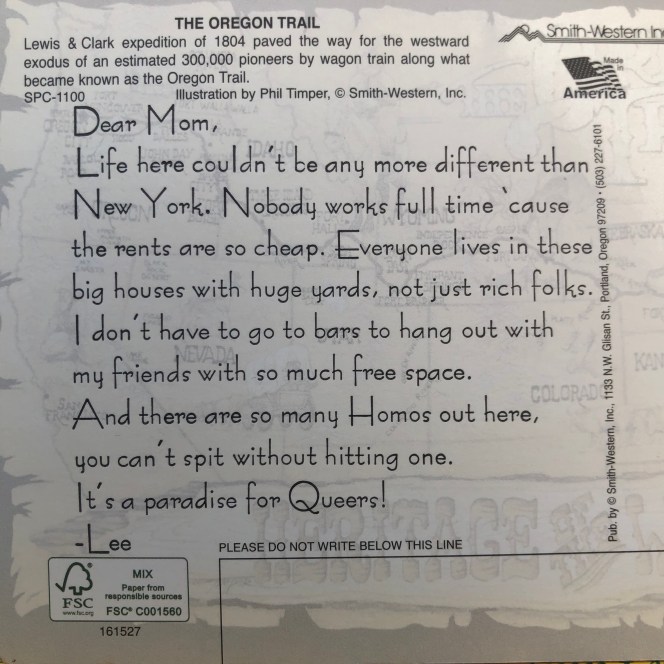 THE OREGON TRAIL
Lewis & Clark expedition of 1804 paved the way for the westward
exodus of an estimated 300,000 pioneers by wagon train along what
became known as the Oregon Trail.
SPC-1100 Illustration by Phil Timper, © Smith-Western, Inc.
Smith-Western Inc
Made
in
America
Dear Mom,
Life here couldn't be any more different than
New York. Nobody works full time 'cause
the rents are so cheap. Everyone lives in these
big houses with huge yards, not just rich folks.
I don't have to go to bars to hang out with
my friends with so much free space.
And there are so many Homos out here,
you can't spit without hitting one.
It's a paradise for Queers!
-Lee
Pub. by © Smith-Western, Inc., 1133 N.W. Glisan St., Portland, Oregon 97209 • (503) 227-6101
PLEASE DO NOT WRITE BELOW THIS LINE
FSC
www.fsc.org
MIX
Paper from
responsible sources
FSC® C001560
161527
IDAHO
NEVADA
COLORADO
KAN
HERITAGE